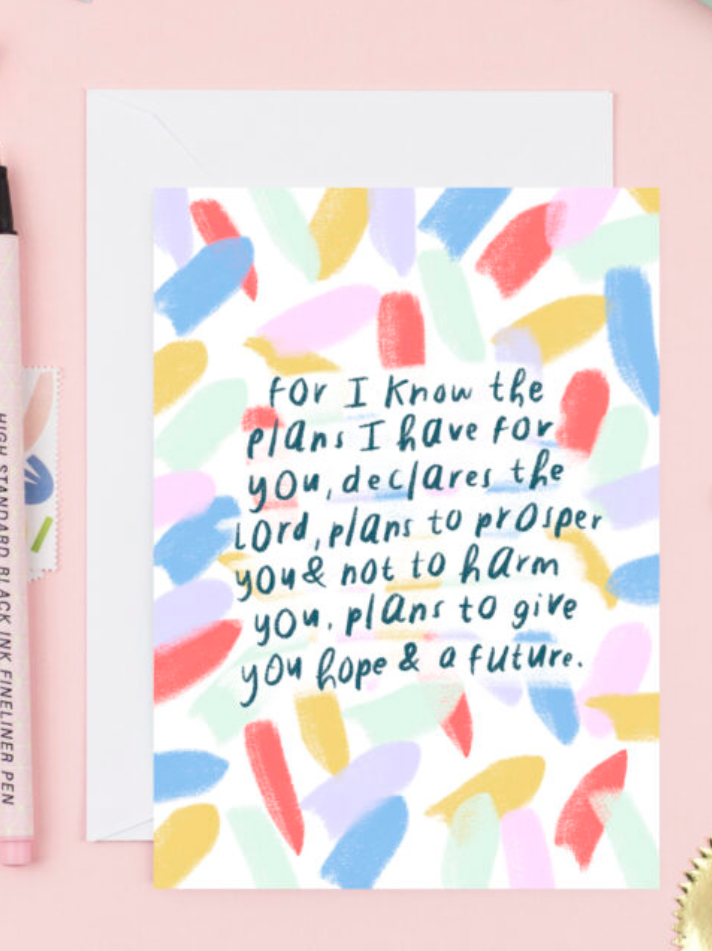 for I know the
plans I have for
you, declares the
lord, plans to prosper
you & not to harm
you, plans to give
you hope & a future.
HIGH STANDARD BLACK INK FINELINER PEN